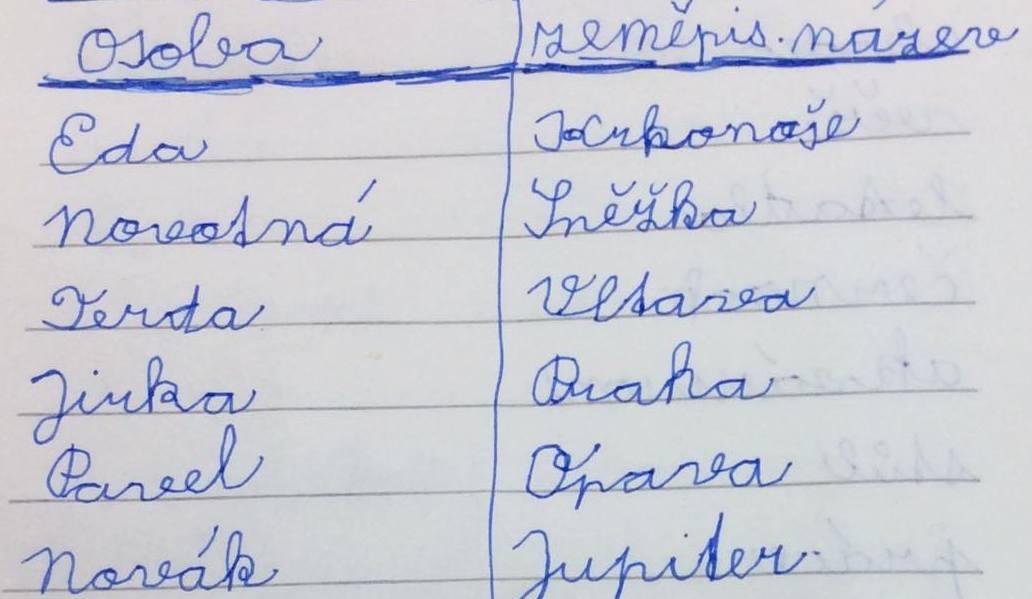 Osoba zeměpis. název
Eda Krkonoše
Novotná Sněžka
Terda Vltava
Jirka Praha
Pavel Opava
Novák Jupiter